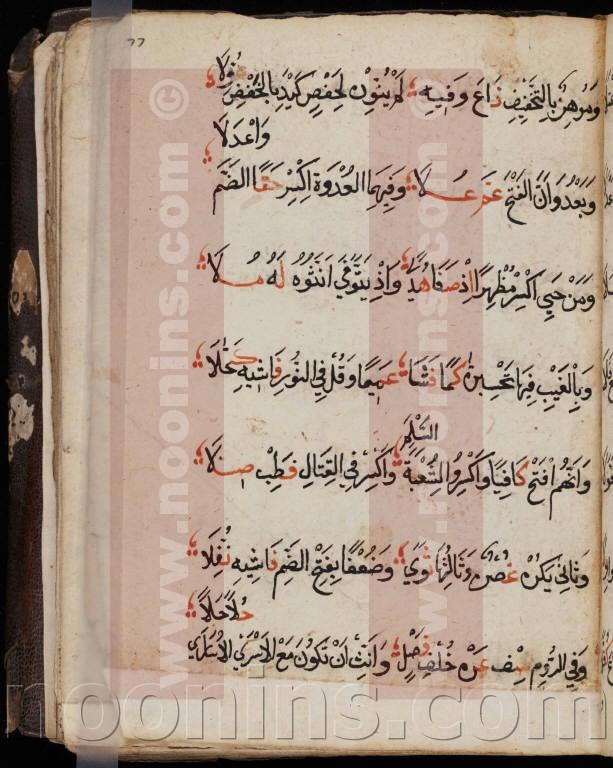 ٦٦
وَمُوهِنُ بِالتَّخْفِيفِ ذَاعَ وَفِيهِ لَمْ يُنَوِّنْ لِحَفْصٍ كَيْدِ بِالْخَفْضِ عُوِّلَا
وَاعْدِلَا
وَبَعْدُ وَاَنَّ الْفَتْحُ عَمَّ عُلًا وَفِيهِمَا الْعُدْوَةِ اكْسِرْ حَقًّا الضَّمَّ
وَمَنْ حَيِيَ اكْسِرْ مُظْهِرًا اِذْ صَفَا هُدًى وَاِذْ يَتَوَفَّى اَنِّثُوهُ لَهُ مُلَا
وَبِالْغَيْبِ فِيهَا تَحْسِبَنَّ كَمَا فَشَا عَمِيمًا وَقُلْ فِي النُّورِ فَاشِيهِ كَحَّلَا
السَّلْمِ
وَاَنَّهُمُ افْتَحْ كَافِيًا وَاكْسِرُوا لِشُعْبَةَ وَاكْسِرْ فِي الْقِتَالِ فَطِبْ صِلَا
وَثَانِي يَكُنْ غُصْنٌ وَثَالِثُهَا ثَوَى وَضُعْفًا بِفَتْحِ الضَّمِّ فَاشِيهِ نُفِّلَا
حُلًا حَلَا
وَفِي الرُّومِ صِفْ عَنْ خُلْفِ فَصْلٍ وَاَنِّثْ اَنْ تَكُونَ مَعَ الْاَسْرَى الْاُسَارَى
© www.noonins.com
© www.noonins.com
noonins.com